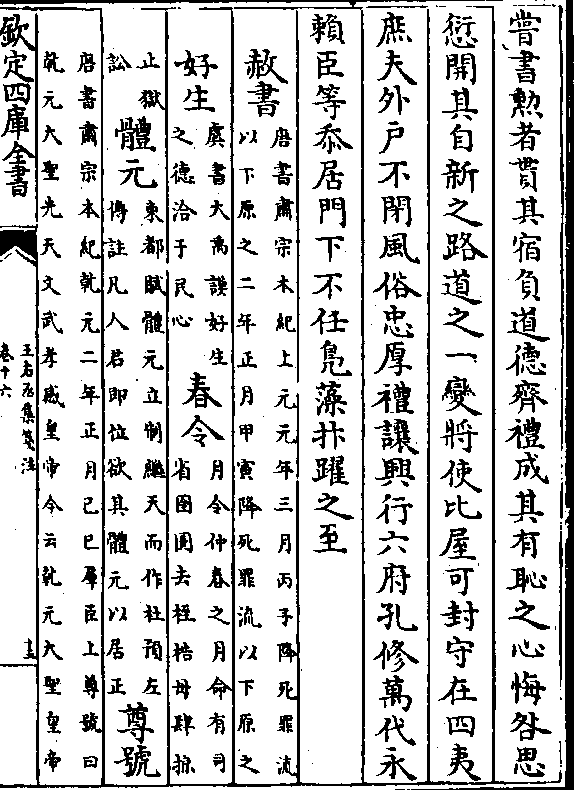 嘗書勲者貰其宿負道德齊禮成其有恥之心悔咎思
愆開其自新之路道之一變將使比屋可封守在四夷
庶夫外户不閉風俗忠厚禮讓興行六府孔修萬代永
賴臣等忝居門下不任鳬藻抃躍之至
赦書
唐書肅宗本紀上元元年三月丙子降死罪流
以下原之二年正月甲寅降死罪流以下原之
好生
虞書大禹謨好生
之德洽于民心
春令
月令仲春之月命有司
省囹圄去桎梏毋肆掠
止獄
訟
體元
東都賦體元立制繼天而作杜預左
傳註凡人君即位欲其體元以居正
尊號
唐書肅宗本紀乾元二年正月己巳羣臣上尊號曰
乾元大聖光天文武孝感皇帝今云乾元大聖皇帝
欽定四庫全書
王右丞集箋注
卷十六